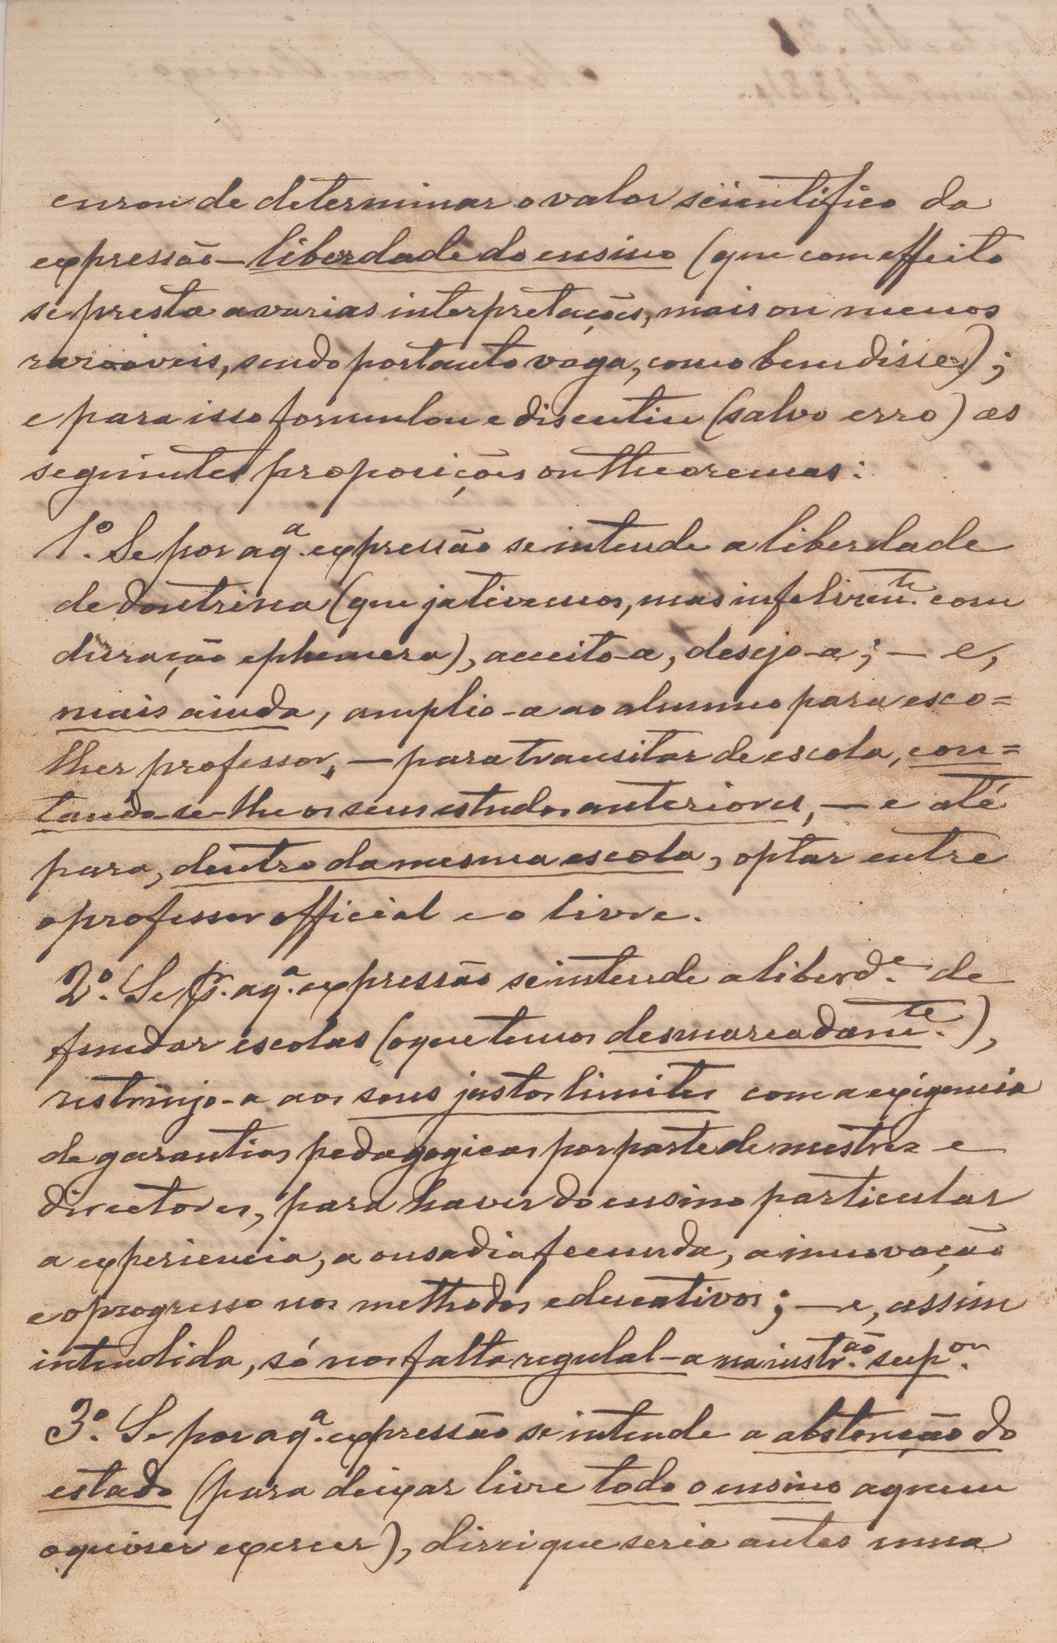 curou de determinar o valor scientifico da
expressão — liberdade do ensino (que com effeito
se presta a varias interpretações, mais ou menos
razoaveis, sendo portanto vaga, como bem disse);
e para isso formulou e discutiu (salvo erro) as
seguintes proposições ou theoremas:
1.º Se por aq.ª expressão se intende a liberdade
de doutrina (que ja tivemos, mas infelizm.te com
duração ephemera), acceito-a, desejo-a; — e,
mais ainda, amplio-a ao alumno para esco=
lher professor, — para transitar de escola, con=
tando-se-lhe os seus estudos anteriores, — e até
para, dentro da mesma escola, optar entre
o professor official e o livre.
2.º Se p.r aq.ª expressão se intende a liberd.e de
fundar escolas (o que temos desmarcadam.te),
restrinjo-a aos seus justos limites com a exigencia
de garantias pedagogicas por parte de mestres e
directores, para haver do ensino particular
a experiencia, a ousadia fecunda, a innovação
e o progresso nos methodos educativos; — e, assim
intendida, só nos falta regulal-a na instr.ão sup.or
3.º Se por aq.ª expressão se intende a abstenção do
estado (para deixar livre todo o ensino a quem
o quiser exercer), direi que seria antes uma